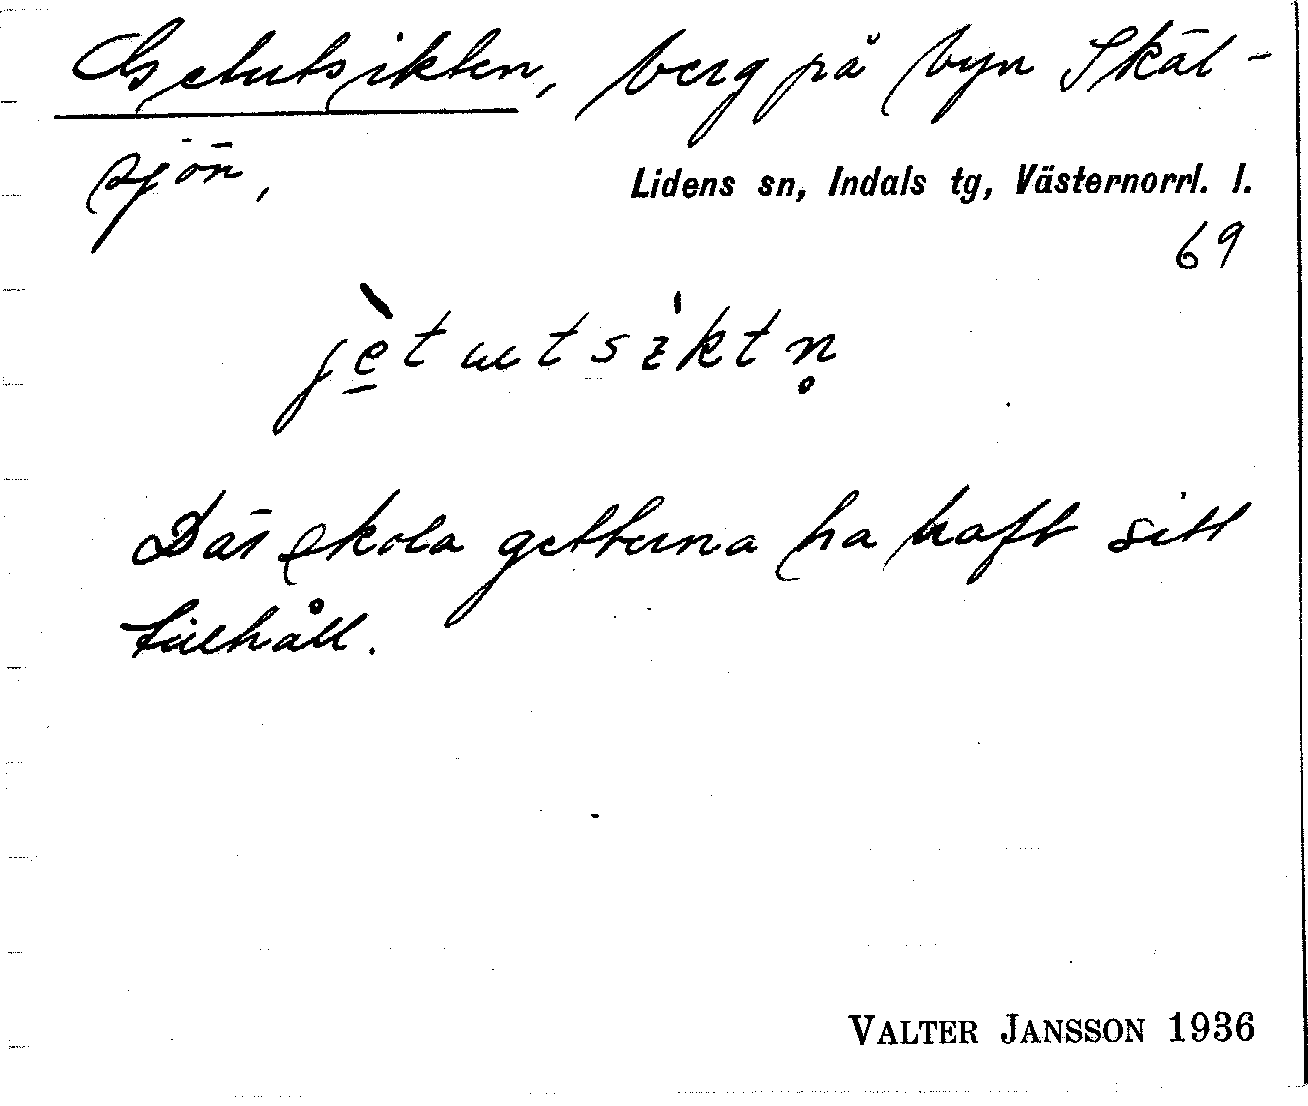 Getutsikten, berg på byn Skäl-
sjön,
Lidens sn, Indals tg, Västernorrl. l.
69
jè̠tutsiktn̥
Där skola getterna ha haft sitt
tillhåll.
VALTER JANSSON 1936